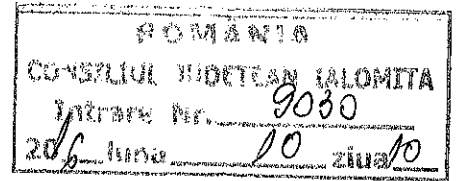 ROMANIA
CONSILIUL JUDETEAN IALOMITA
Intrare Nr. 9030
2016 luna 10 ziua 10